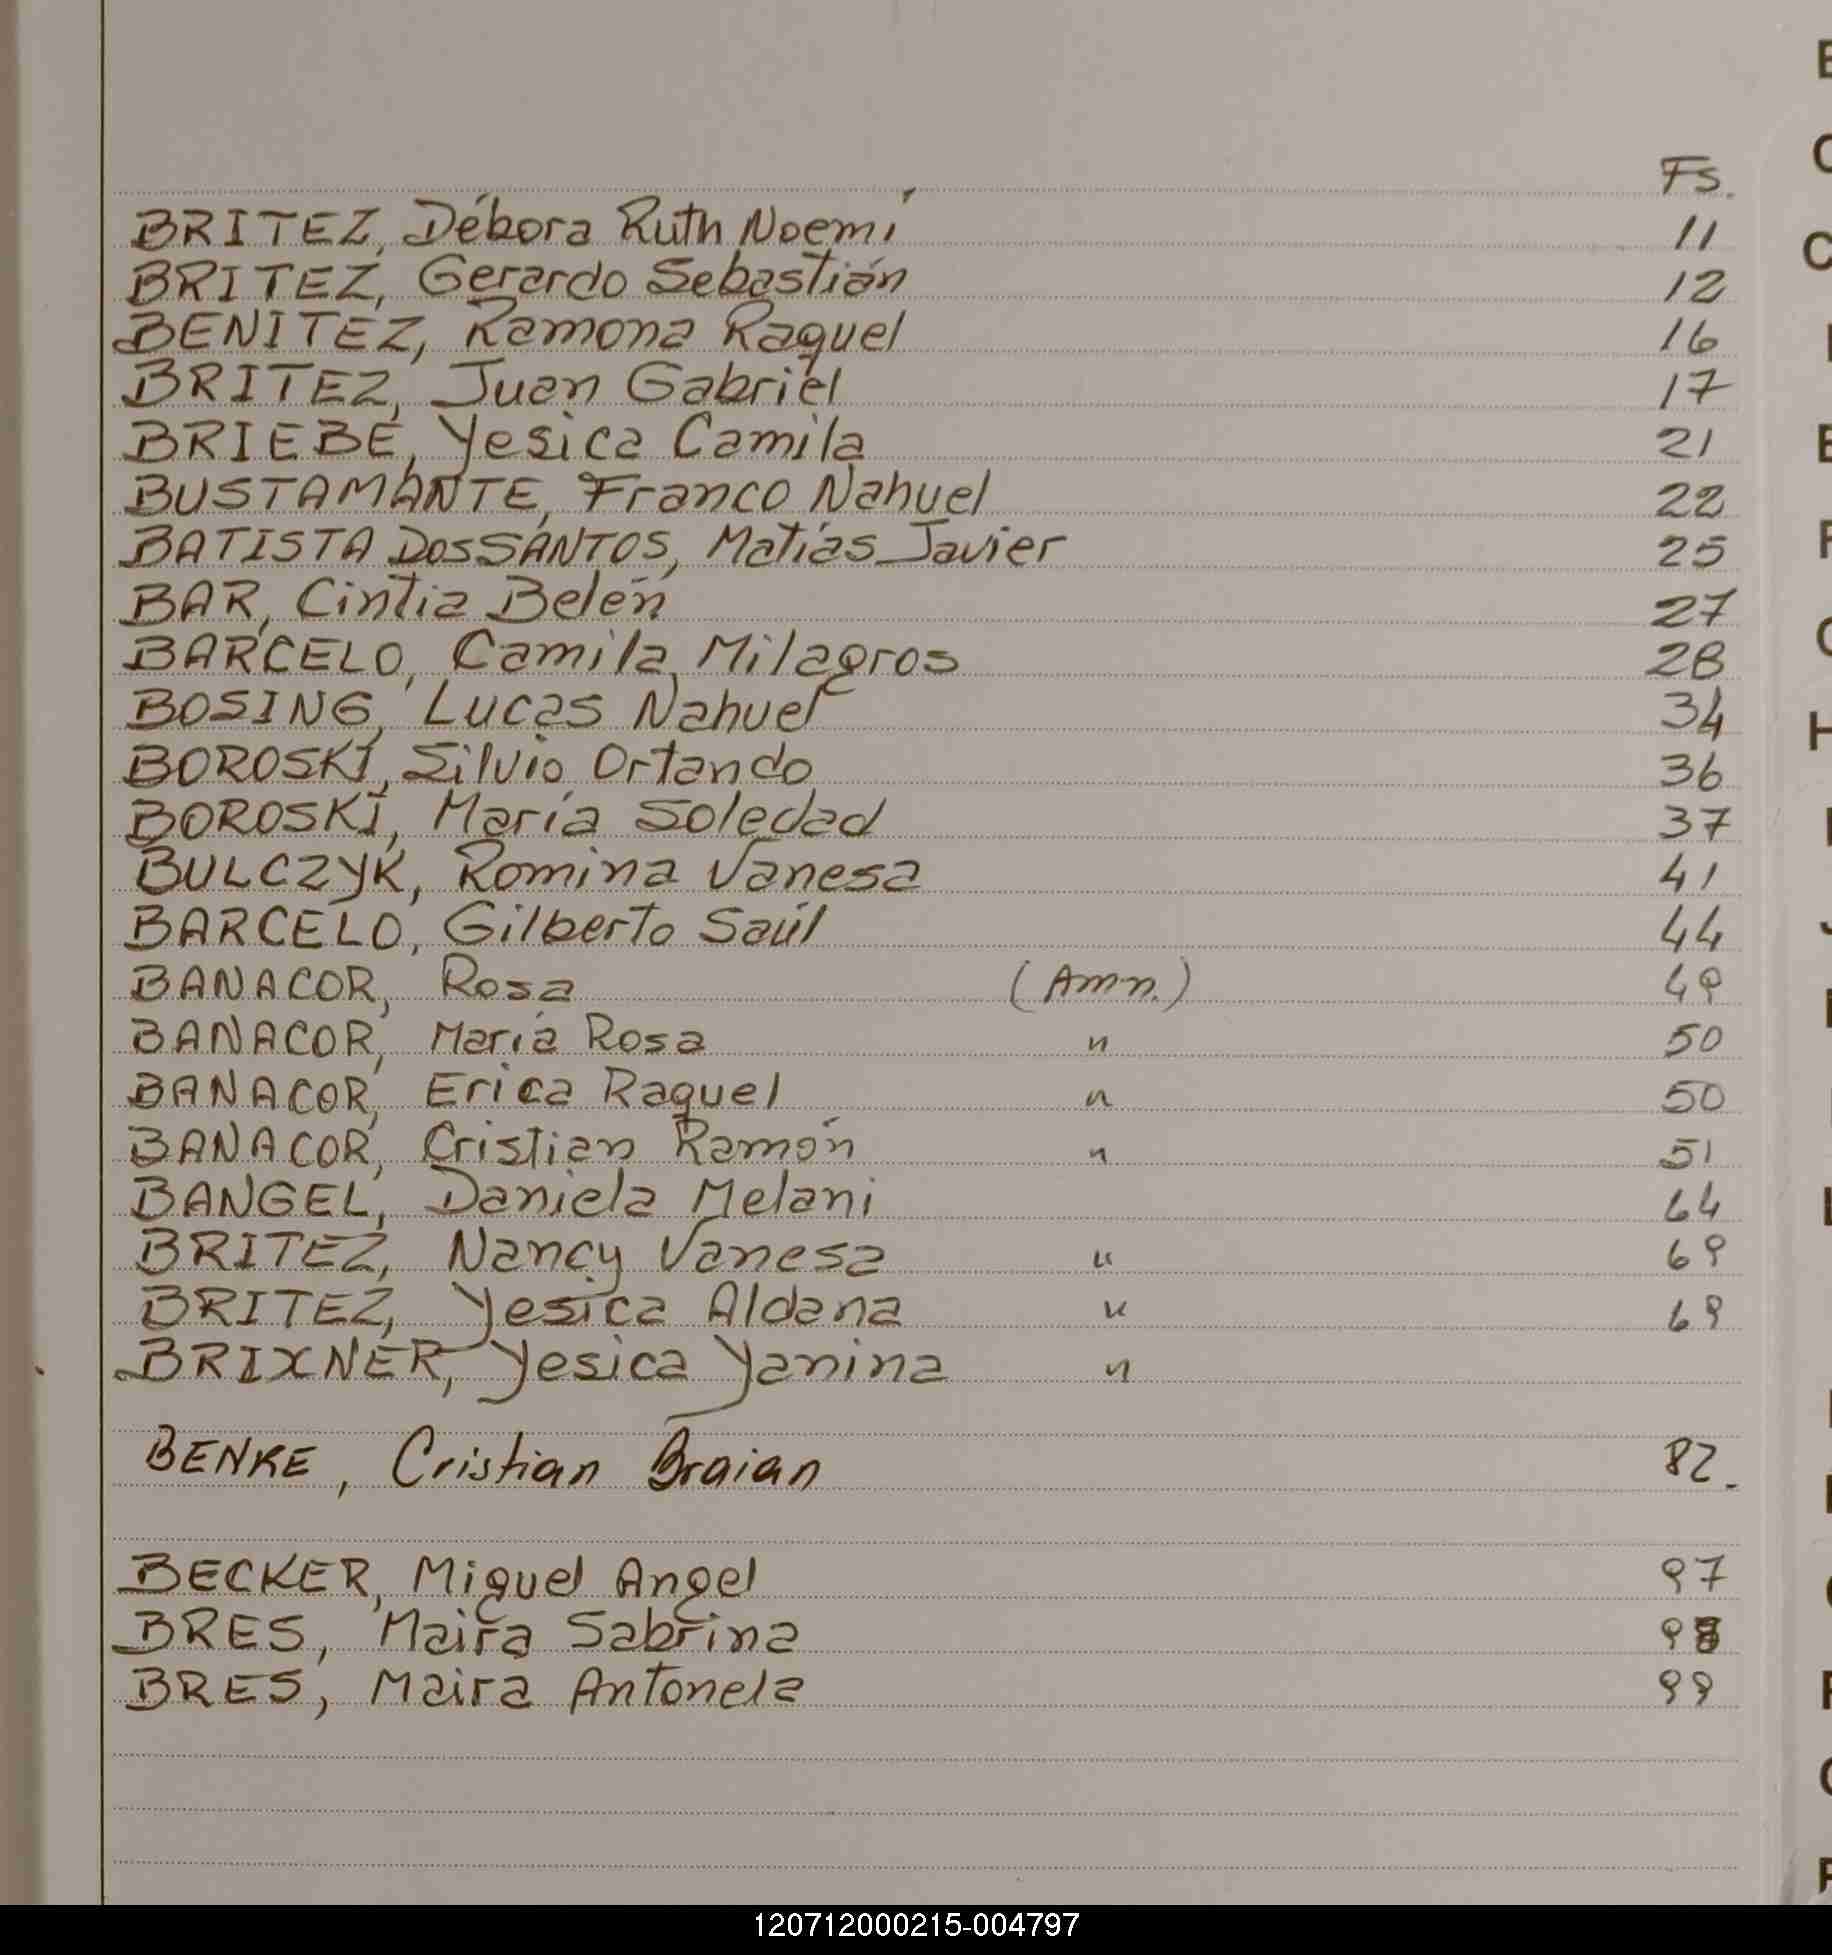 Fs.
BRITEZ, Débora Ruth Noemí 11
BRITEZ, Gerardo Sebastián 12
BENITEZ, Ramona Raquel 16
BRITEZ, Juan Gabriel 17
BRIEBE, Yesica Camila 21
BUSTAMANTE, Franco Nahuel 22
BATISTA DosSANTOS, Matías Javier 25
BAR, Cintia Belén 27
BARCELO, Camila Milagros 28
BOSING, Lucas Nahuel 34
BOROSKI, Silvio Ortando 36
BOROSKI, María Soledad 37
BULCZYK, Romina Vanesa 41
BARCELO, Gilberto Saúl 44
BANACOR, Rosa (Amn.) 49
BANACOR, María Rosa " 50
BANACOR, Erica Raquel " 50
BANACOR, Cristian Ramón " 51
BANGEL, Daniela Melani 64
BRITEZ, Nancy Vanesa " 69
BRITEZ, Yesica Aldana " 69
BRIXNER, Yesica Yanina "
BENKE, Cristian Braian 82.
BECKER, Miguel Angel 97
BRES, Maira Sabrina 98
BRES, Maira Antonela 99
120712000215-004797